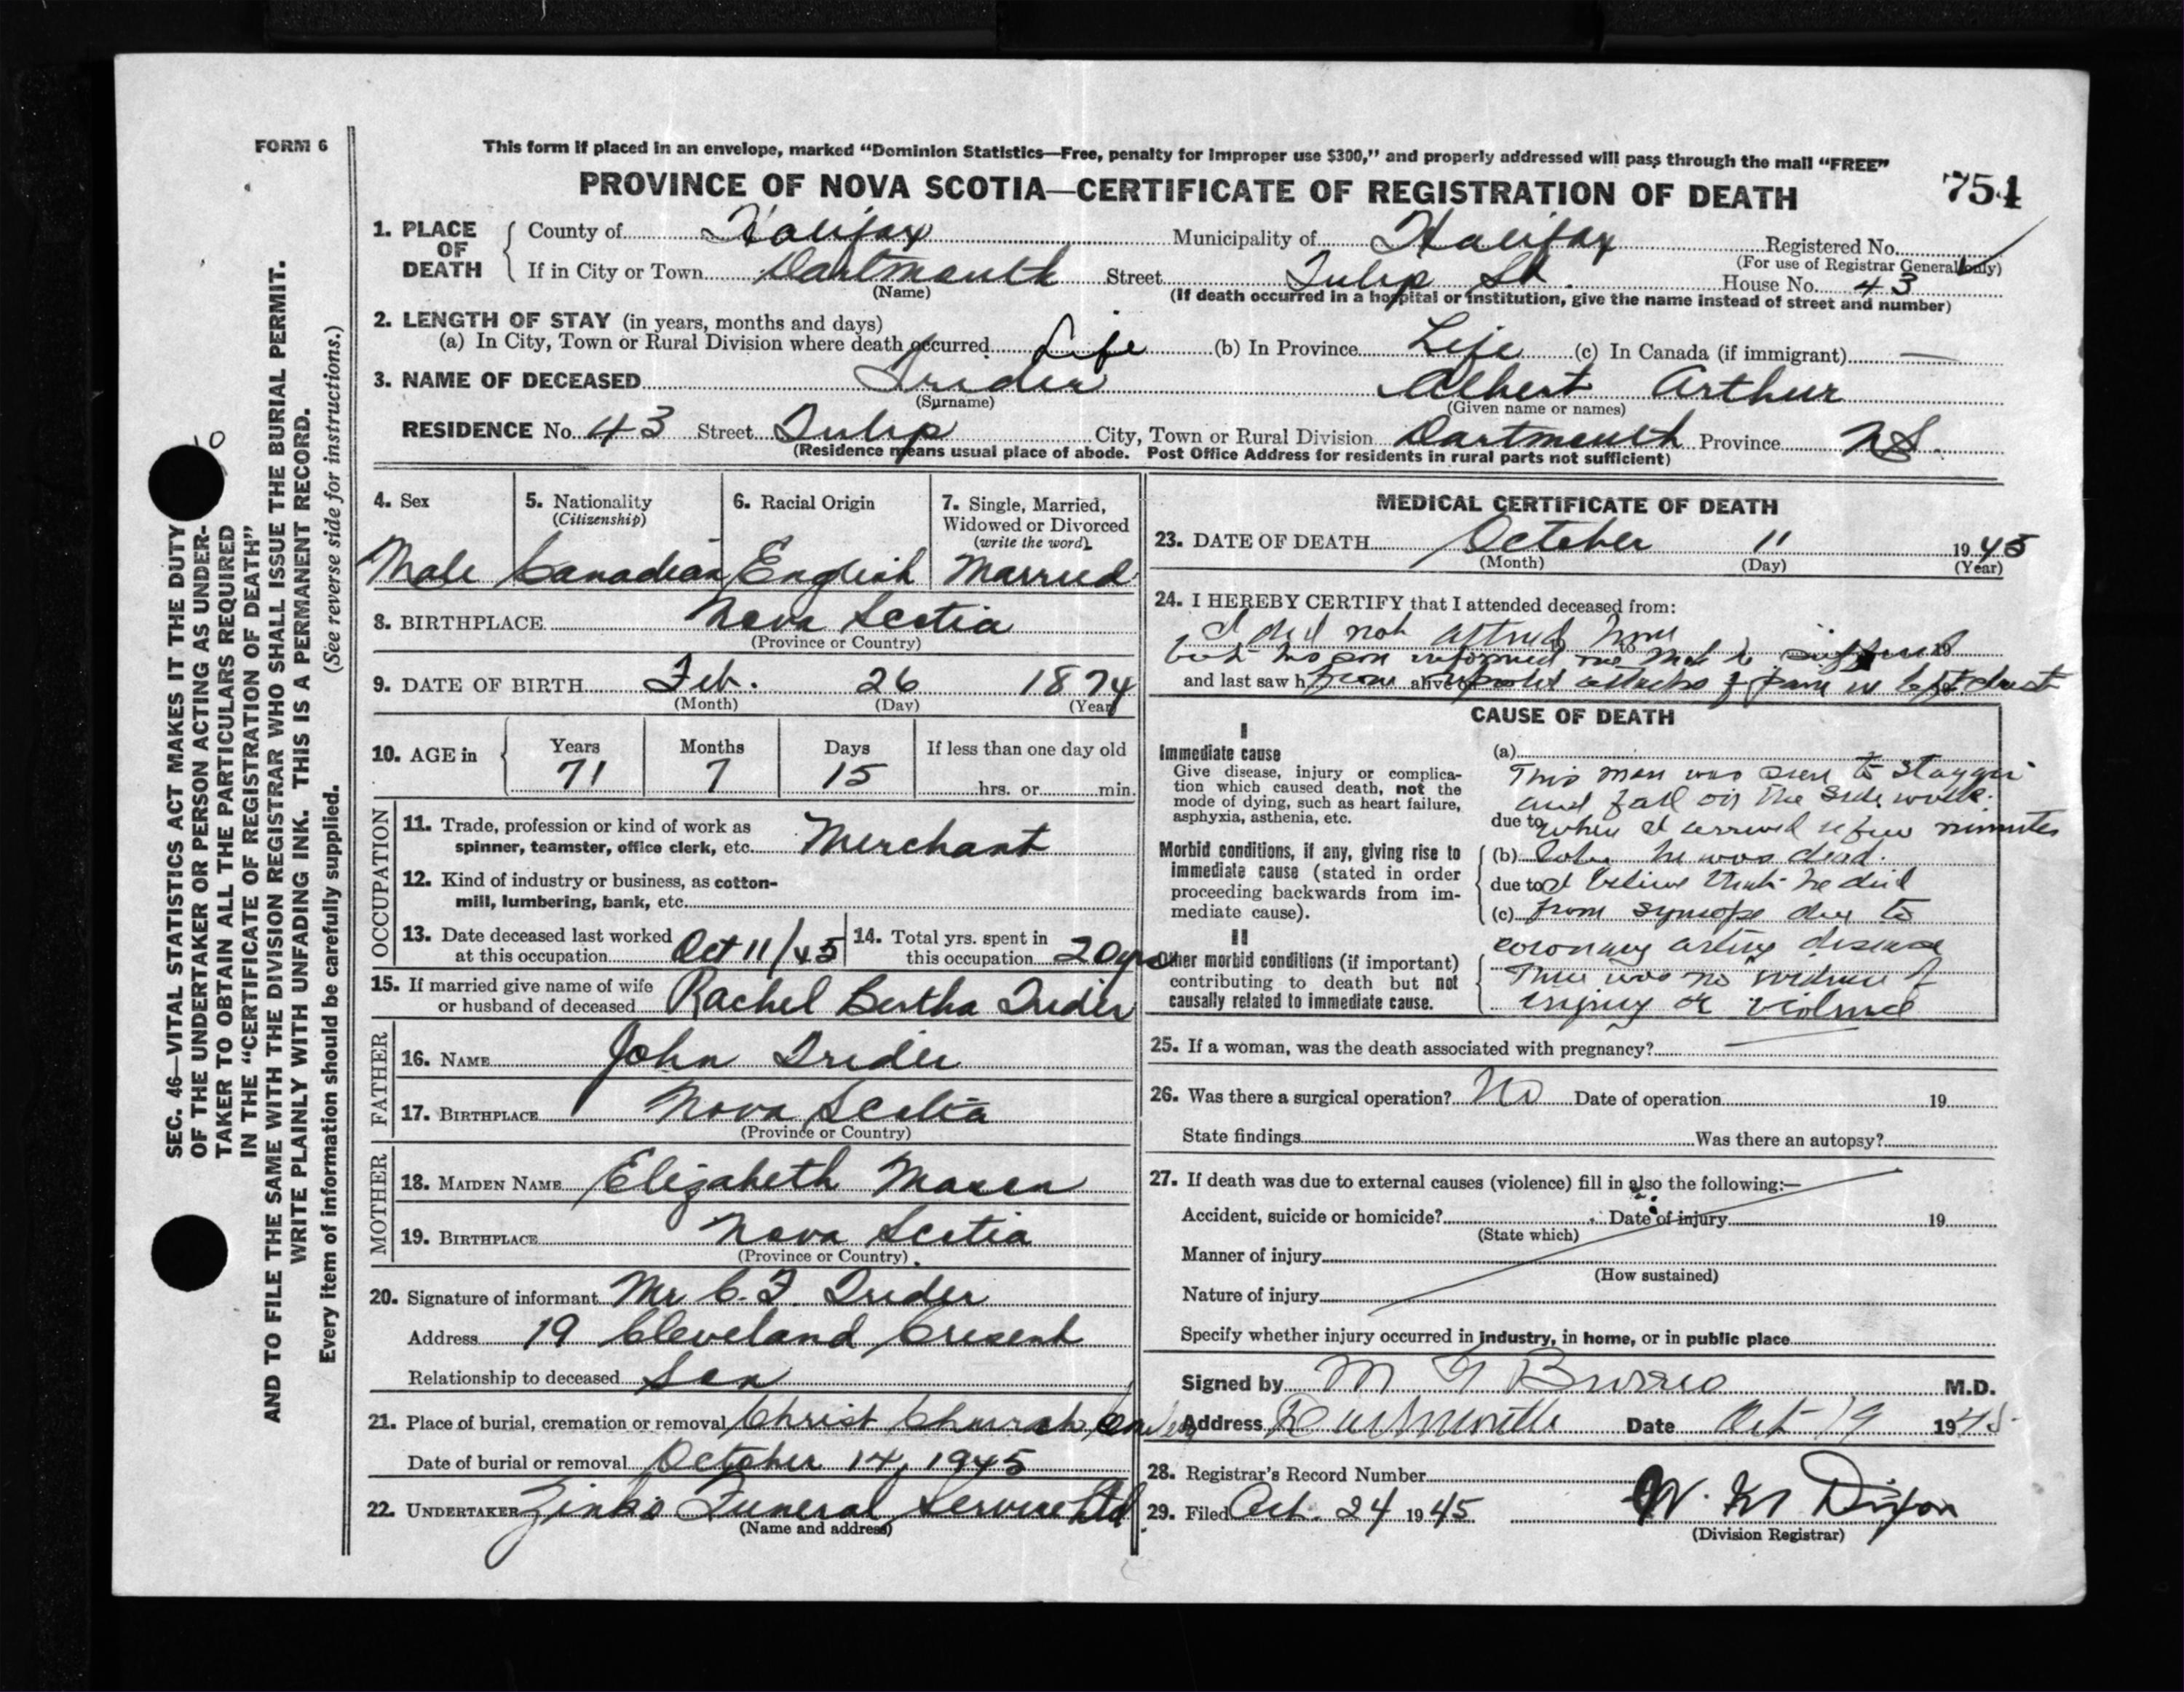 FORM 6
This form if placed in an envelope, marked “Dominion Statistics—Free, penalty for improper use $300,” and properly addressed will pass through the mail “FREE”
PROVINCE OF NOVA SCOTIA—CERTIFICATE OF REGISTRATION OF DEATH
754
1. PLACE OF DEATH
County of Halifax Municipality of Halifax Registered No.
(For use of Registrar General only)
If in City or Town Dartmouth Street Tulip St. House No. 43
(Name) (If death occurred in a hospital or institution, give the name instead of street and number)
2. LENGTH OF STAY (in years, months and days)
(a) In City, Town or Rural Division where death occurred Life (b) In Province Life (c) In Canada (if immigrant) —
3. NAME OF DECEASED Trider Albert Arthur
(Surname) (Given name or names)
RESIDENCE No. 43 Street Tulip City, Town or Rural Division Dartmouth Province N.S.
(Residence means usual place of abode. Post Office Address for residents in rural parts not sufficient)
4. Sex
Male
5. Nationality
(Citizenship)
Canadian
6. Racial Origin
English
7. Single, Married,
Widowed or Divorced
(write the word)
Married
8. BIRTHPLACE Nova Scotia
(Province or Country)
9. DATE OF BIRTH Feb. 26 1874
(Month) (Day) (Year)
10. AGE in
Years Months Days If less than one day old
71 7 15 hrs. or min.
OCCUPATION
11. Trade, profession or kind of work as
spinner, teamster, office clerk, etc. Merchant
12. Kind of industry or business, as cotton-
mill, lumbering, bank, etc.
13. Date deceased last worked
at this occupation Oct 11/45
14. Total yrs. spent in
this occupation 20 yrs
15. If married give name of wife
or husband of deceased Rachel Bertha Trider
FATHER
16. NAME John Trider
17. BIRTHPLACE Nova Scotia
(Province or Country)
MOTHER
18. MAIDEN NAME Elizabeth Mason
19. BIRTHPLACE Nova Scotia
(Province or Country)
20. Signature of informant Mr C. F. Trider
Address 19 Cleveland Cresent
Relationship to deceased Son
21. Place of burial, cremation or removal Christ Church
Date of burial or removal October 14, 1945
22. UNDERTAKER Zinks Funeral Service Ltd
(Name and address)
MEDICAL CERTIFICATE OF DEATH
23. DATE OF DEATH October 11 1945
(Month) (Day) (Year)
24. I HEREBY CERTIFY that I attended deceased from:
I did not attend him to 19
but his son informed me that he suffered 19
and last saw h from alive on repeated attacks of pain in left chest
CAUSE OF DEATH
I
Immediate cause
Give disease, injury or complica-
tion which caused death, not the
mode of dying, such as heart failure,
asphyxia, asthenia, etc.
Morbid conditions, if any, giving rise to
immediate cause (stated in order
proceeding backwards from im-
mediate cause).
II
Other morbid conditions (if important)
contributing to death but not
causally related to immediate cause.
(a)
This man was seen to stagger
and fall on the side walk.
due to when I arrived a few minutes
(b) later he was dead.
due to I believe that he died
(c) from syncope due to
coronary artery disease
There was no evidence of
injury or violence
25. If a woman, was the death associated with pregnancy?
26. Was there a surgical operation? No Date of operation 19
State findings Was there an autopsy?
27. If death was due to external causes (violence) fill in also the following:—
Accident, suicide or homicide? Date of injury 19
(State which)
Manner of injury
(How sustained)
Nature of injury
Specify whether injury occurred in industry, in home, or in public place
Signed by M G Burris M.D.
Address Dartmouth Date Oct 19 1945
28. Registrar's Record Number
29. Filed Oct. 24 1945 W. M Dixon
(Division Registrar)
SEC. 46—VITAL STATISTICS ACT MAKES IT THE DUTY
OF THE UNDERTAKER OR PERSON ACTING AS UNDER-
TAKER TO OBTAIN ALL THE PARTICULARS REQUIRED
IN THE “CERTIFICATE OF REGISTRATION OF DEATH”
AND TO FILE THE SAME WITH THE DIVISION REGISTRAR WHO SHALL ISSUE THE BURIAL PERMIT.
WRITE PLAINLY WITH UNFADING INK. THIS IS A PERMANENT RECORD.
Every item of information should be carefully supplied. (See reverse side for instructions.)